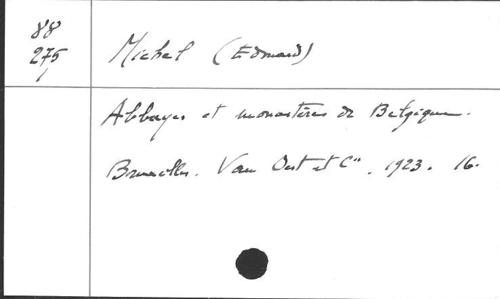 88
275
Michel (Edmond)
Abbayes et monastères de Belgique.
Bruxelles. Van Oest et Cie, 1923. 16.